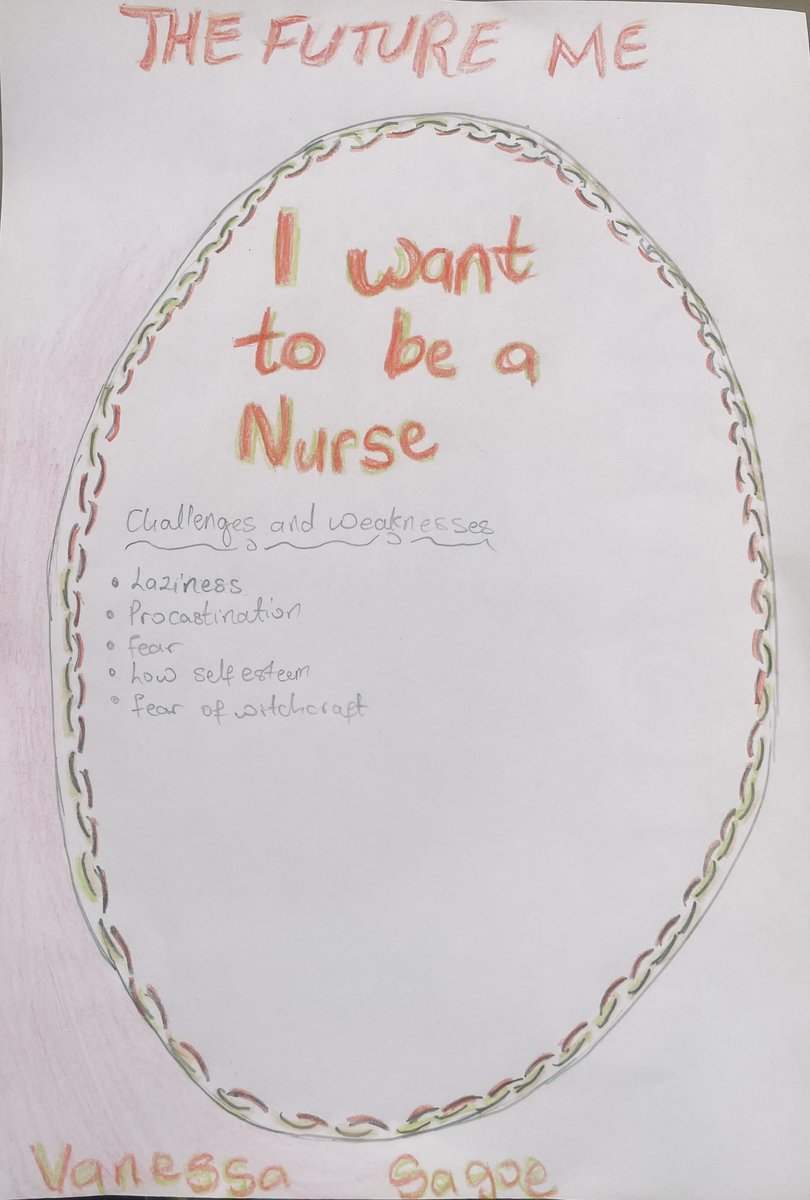 THE FUTURE ME
I want
to be a
Nurse
Challenges and weaknesses
• Laziness
• Procastination
• fear
• Low self esteem
• fear of witchcraft
Vanessa Sagoe